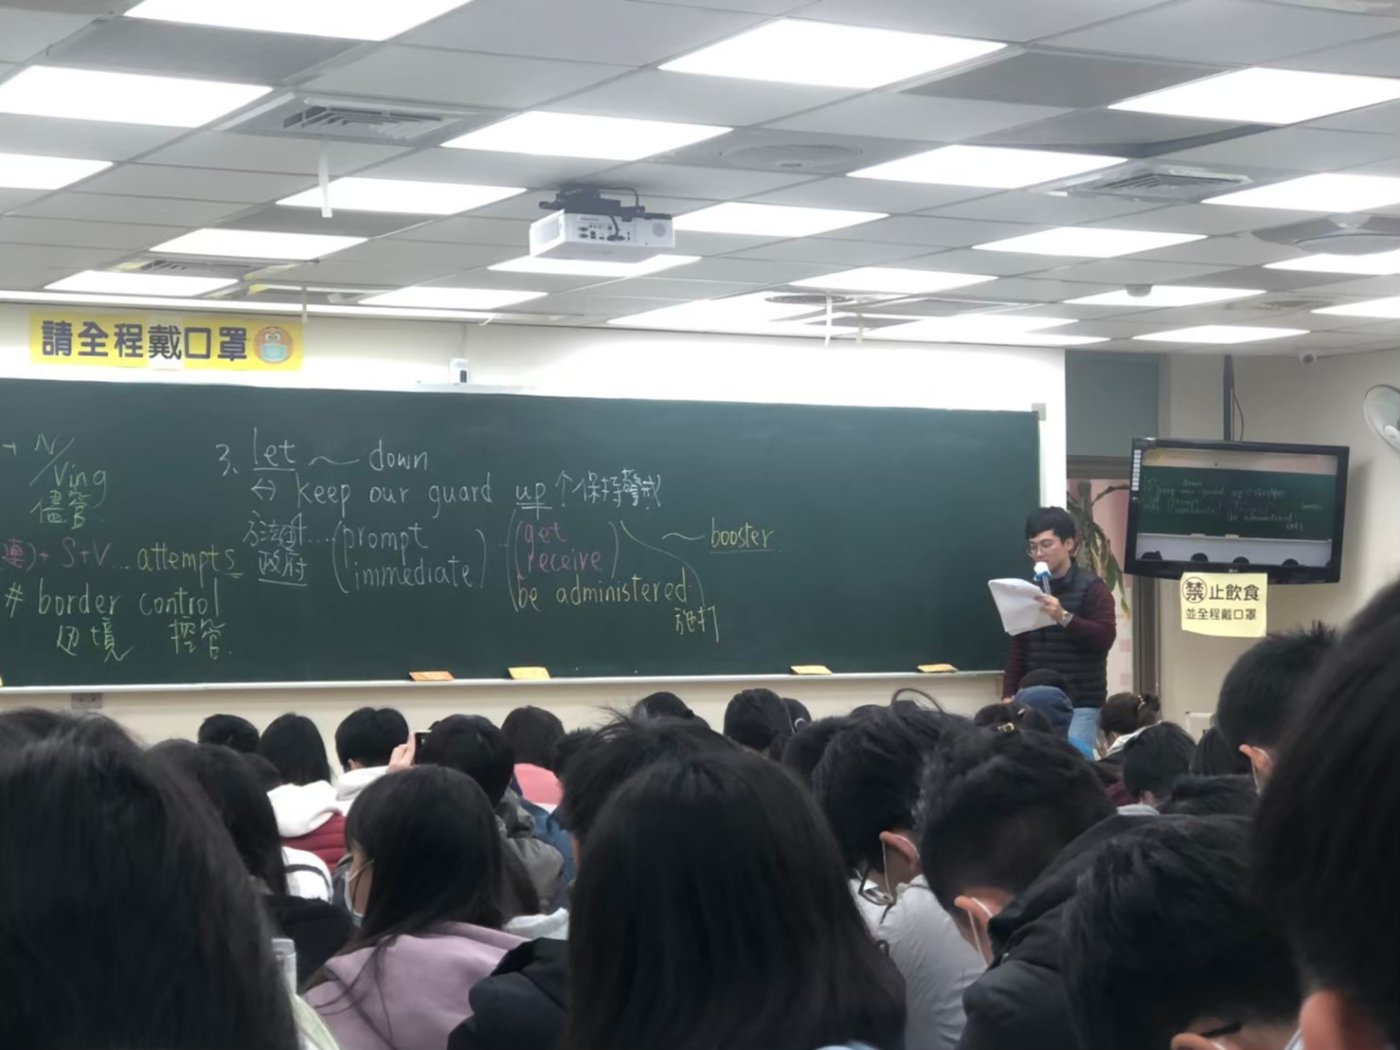 請全程戴口罩
+ N/
Ving
儘管
(連)+ S+V...attempts
# border control
边境 控管
3. let ~ down
↔ keep our guard up ↑保持警戒
政府...(prompt
immediate)
(get
receive)
be administered
施打
~ booster
禁止飲食
並全程戴口罩